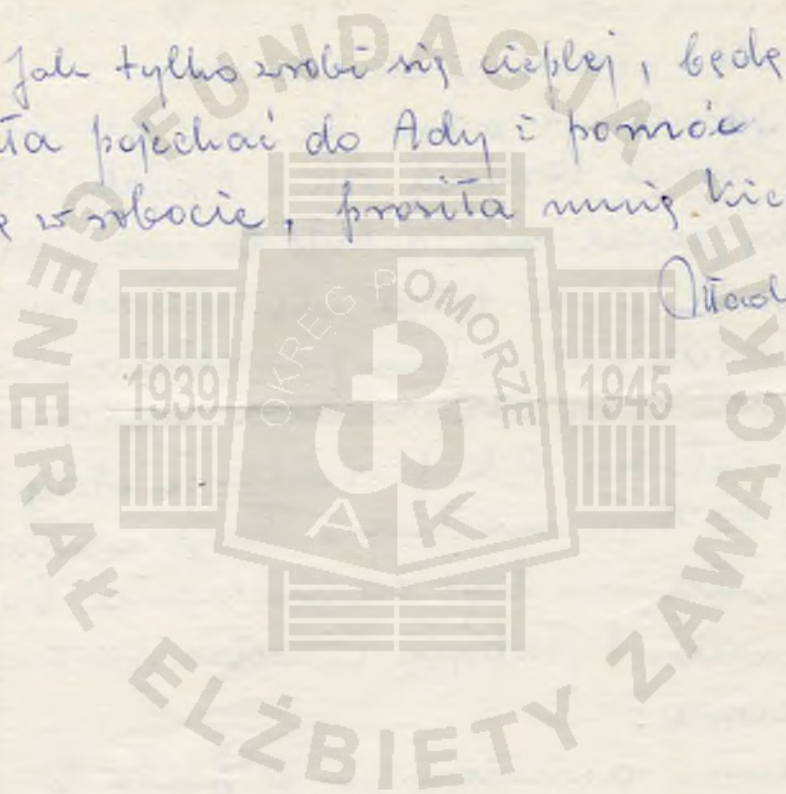 Jak tylko zrobi się cieplej, będę
ła pojechać do Ady i pomóc
ę w robocie, prosiła mnie. Kie
FUNDACJA
GENERAŁ ELŻBIETY ZAWACKIEJ
OKRĘG POMORZE
1939
1945
AK